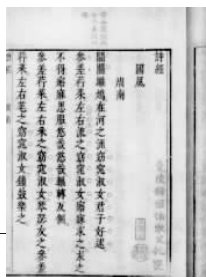 詩經
國風
周南
關關雎鳩在河之洲窈窕淑女君子好逑
參差荇菜左右流之窈窕淑女寤寐求之求之
不得寤寐思服悠哉悠哉輾轉反側
參差荇菜左右采之窈窕淑女琴瑟友之參差
荇菜左右芼之窈窕淑女鍾鼓樂之